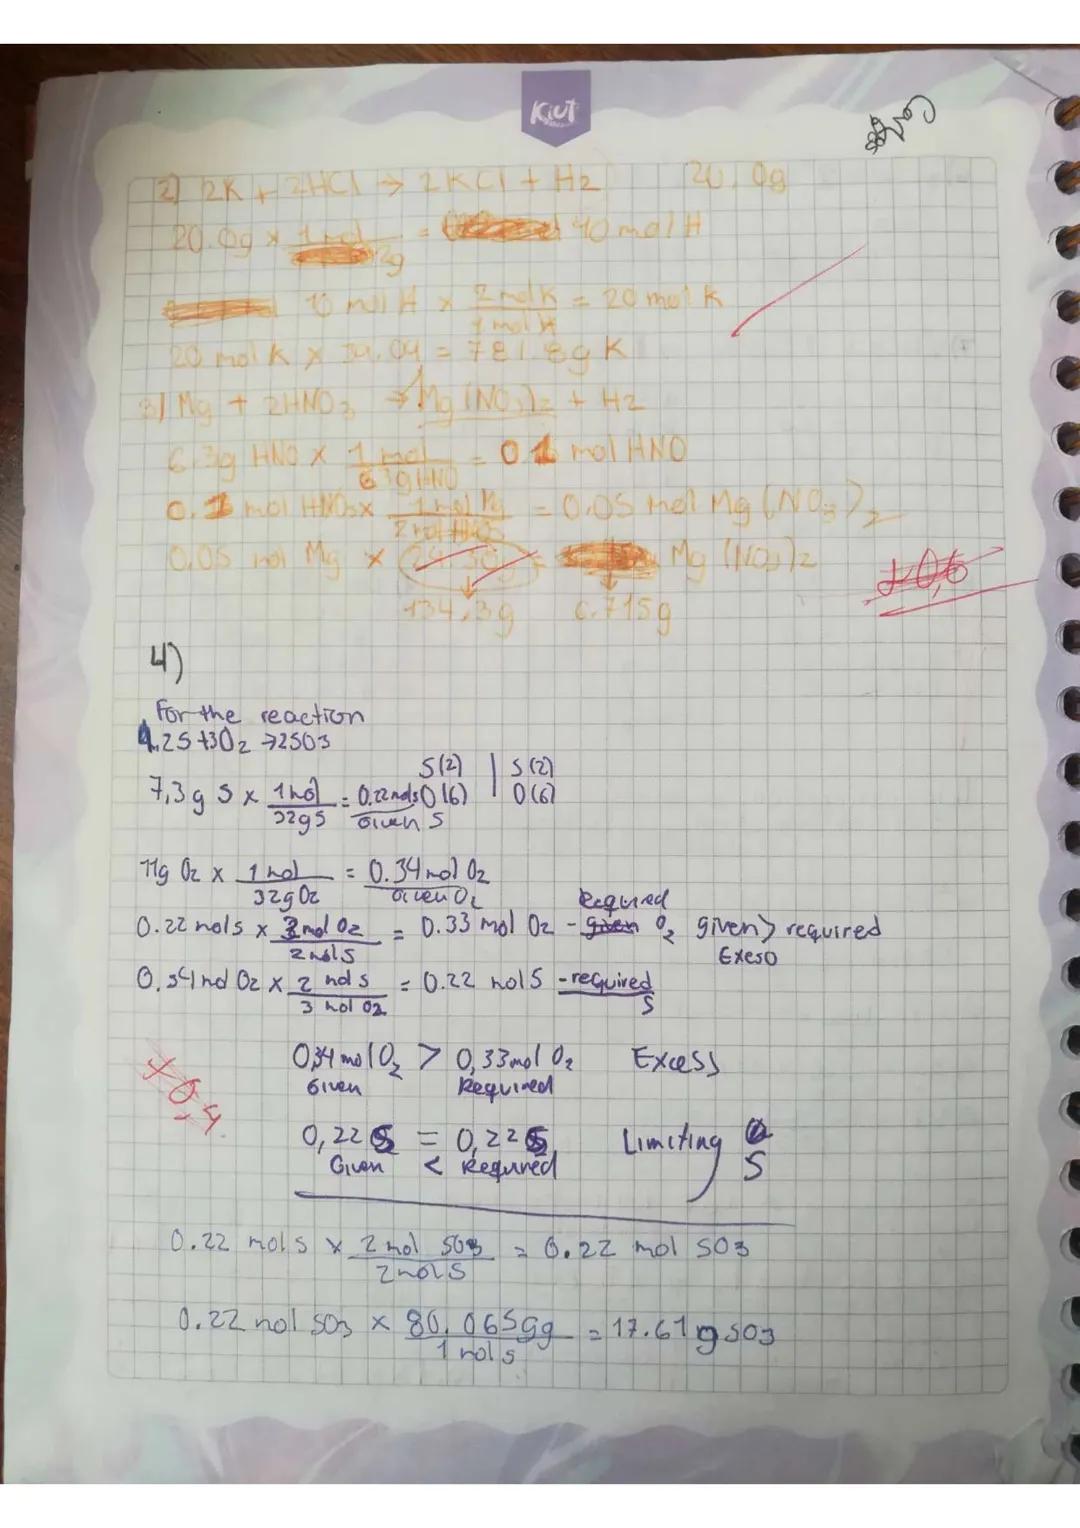 Kiut
2) 2K + 2HCl → 2KCl + H2 20,0g
20.0g x 1 mol / 2g = 10 mol H
10 mol H x 2 mol K / 1 mol H = 20 mol K
20 mol K x 39,09 = 781.8g K
3) Mg + 2HNO3 → Mg(NO3)2 + H2
6.3g HNO x 1 mol / 63gHNO = 0.1 mol HNO
0.1 mol HNO3x 1 mol Mg / 2 mol = 0.05 mol Mg(NO3)2
0.05 mol Mg x Mg(NO3)2
+0,6
134,3g 6.715g
4)
For the reaction
2S+3O2→2SO3
S(2) | S(2)
7,3g S x 1mol / 32gS = 0.22mols O(6) | O(6)
Given S
11g O2 x 1 mol / 32gO2 = 0.34mol O2
Given O2
Required
0.22 mols x 3mol O2 / 2molS = 0.33 mol O2 - given O2 given> required
Exeso
0.34mol O2 x 2 mol S / 3 mol O2 = 0.22 molS - required
S
0,34molO2 > 0,33mol O2 Excess
Given Required
+0,4
0,22 S = 0,22 S Limiting
Given < Required S
0.22 mols x 2mol SO3 / 2molS = 0.22 mol SO3
0.22mol SO3 x 80.0659g / 1mols = 17.61gSO3